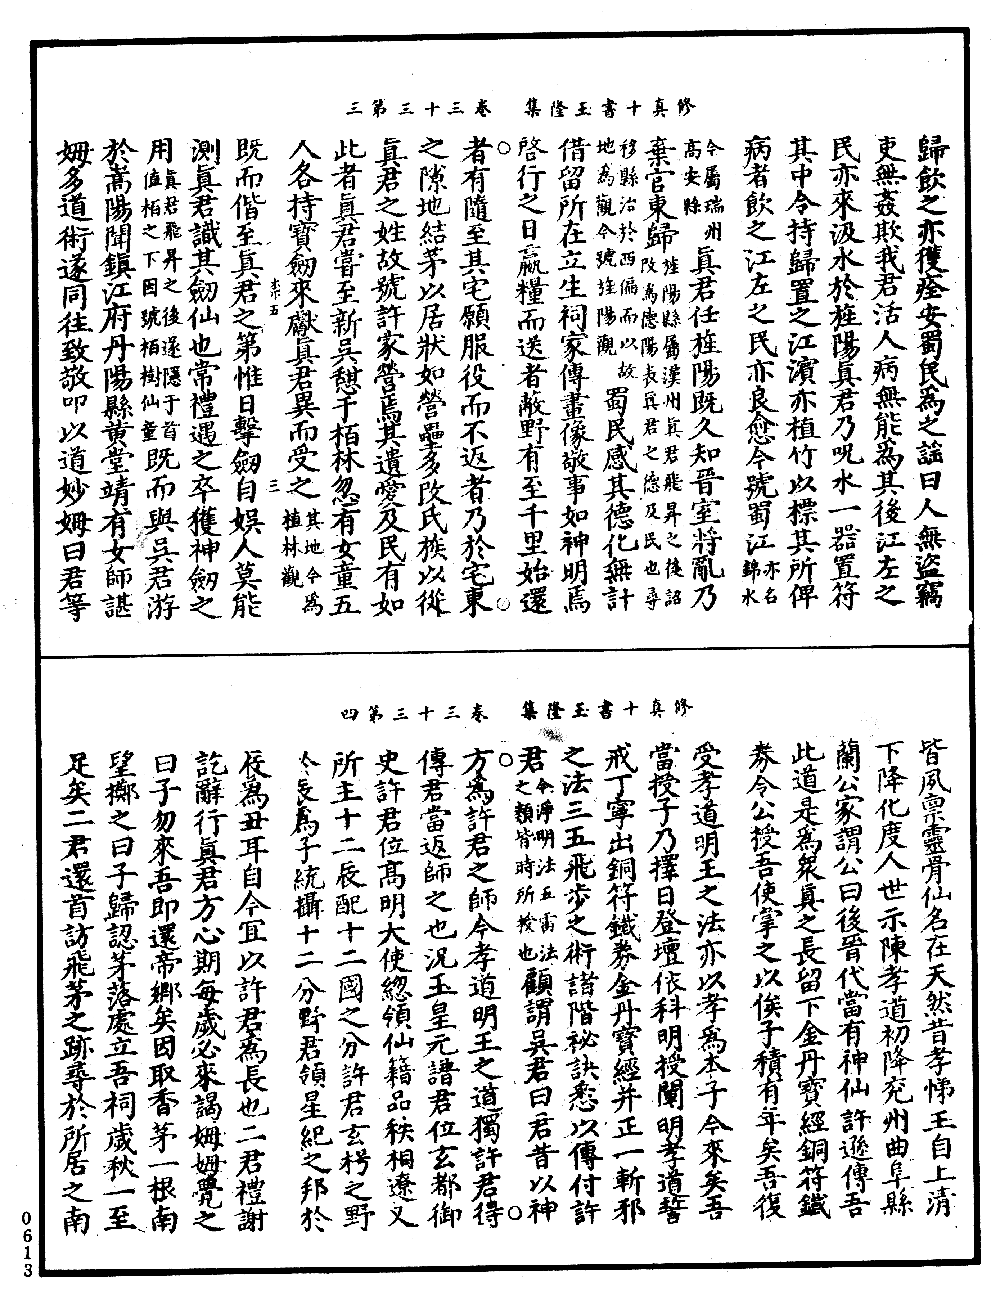 修真十書玉隆集　卷三十三第三
歸飲之亦獲痊安蜀民爲之謡曰人無盜竊
吏無姦欺我君活人病無能爲其後江左之
民亦來汲水於旌陽真君乃呪水一器置符
其中令持歸置之江濱亦植竹以標其所俾
病者飲之江左之民亦良愈今號蜀江亦名錦水
今屬瑞州高安縣真君任旌陽既久知晉室將亂乃
棄官東歸旌陽縣屬漢州真君飛昇之後詔改爲德陽表真君之德及民也尋
移縣治於西偏而以故地爲觀今號旌陽觀蜀民感其德化無計
借留所在立生祠家傳畫像敬事如神明焉
啓行之日贏糧而送者蔽野有至千里始還
者有隨至其宅願服役而不返者乃於宅東
之隙地結茅以居狀如營壘多改氏族以從
真君之姓故號許家營焉其遺愛及民有如
此者真君嘗至新吴憩于栢林忽有女童五
人各持寶劒來獻真君異而受之其地今爲植林觀
既而偕至真君之第惟日擊劒自娱人莫能
測真君識其劒仙也常禮遇之卒獲神劒之
用真君飛昇之後遂隱于首值栢之下因號栢樹仙童既而與吴君游
於嵩陽聞鎮江府丹陽縣黄堂靖有女師諶
姆多道術遂同往致敬叩以道妙姆曰君等
三
修真十書玉隆集　卷三十三第四
皆夙禀靈骨仙名在天然昔孝悌王自上清
下降化度人世示陳孝道初降兖州曲阜縣
蘭公家謂公曰後晉代當有神仙許遜傳吾
此道是爲衆真之長留下金丹寶經銅符鐵
券令公授吾使掌之以俟子積有年矣吾復
受孝道明王之法亦以孝爲本子今來矣吾
當授子乃擇日登壇依科明授闡明孝道誓
戒丁寧出銅符鐵券金丹寶經并正一斬邪
之法三五飛步之術諸階祕訣悉以傳付許
君今淨明法五雷法之類皆時所授也顧謂吴君曰君昔以神
方爲許君之師今孝道明王之道獨許君得
傳君當返師之也况玉皇元譜君位玄都御
史許君位高明大使總領仙籍品秩相遼又
所主十二辰配十二國之分許君玄枵之野
於辰爲子統攝十二分野君領星紀之邦於
辰爲丑耳自今宜以許君爲長也二君禮謝
訖辭行真君方心期每歲必來謁姆姆覺之
曰子勿來吾即還帝鄉矣因取香茅一根南
望擲之曰子歸認茅落處立吾祠歲秋一至
足矣二君還首訪飛茅之跡尋於所居之南
0613